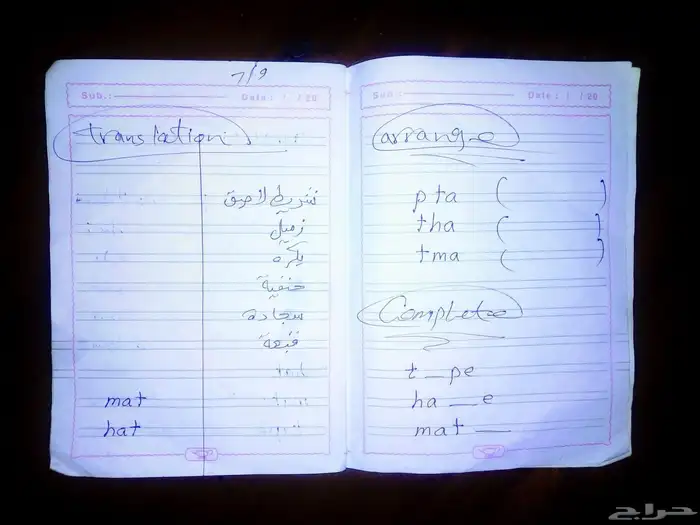 7/9
Sub.: Date: / / 20
translation
شريط لاصق
زميل
يكره
حنفية
سجادة
قبعة
mat
hat
Sub.: Date: / / 20
arrange
pta ( )
tha ( )
tma ( )
Complete
t _ pe
ha _ e
mat _
حراج